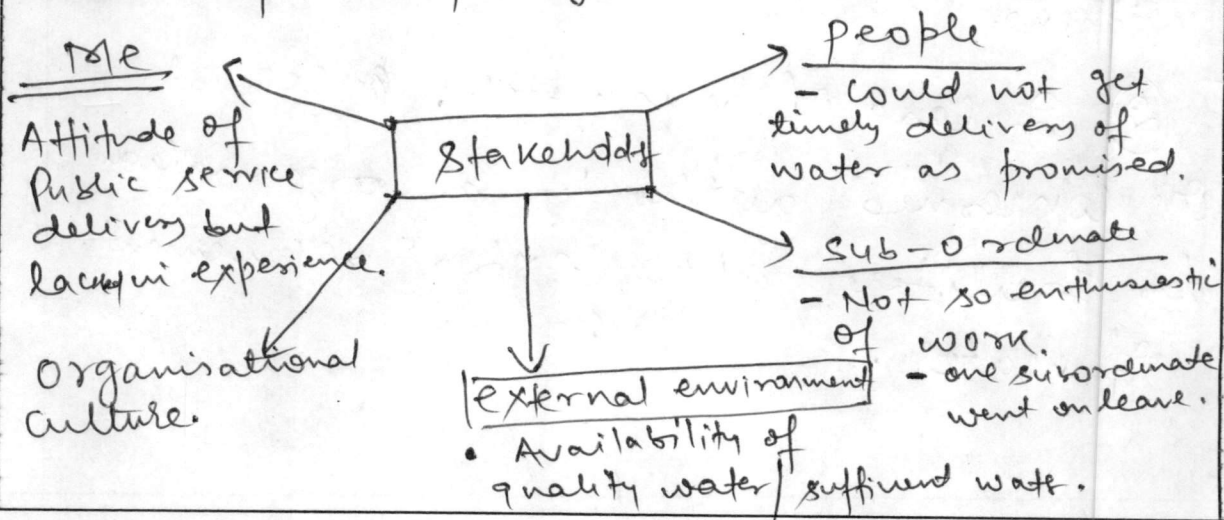 Me
Attitude of
Public service
delivery but
lacking experience.
Organisational
Culture.
Stakeholders
People
- Could not get
timely delivery of
water as promised.
Sub-Ordinate
- Not so enthusiastic
of work.
- one subordinate
went on leave.
external environment
• Availability of
quality water / sufficient water.